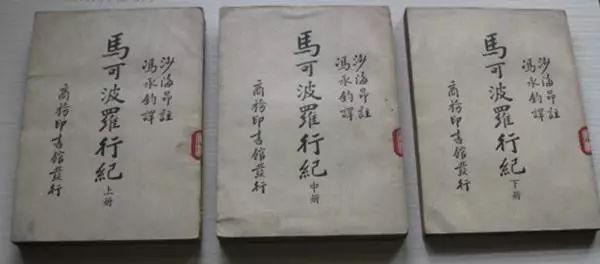 沙海昂註
馮承鈞譯
馬可波羅行紀 上册
商務印書館發行
沙海昂註
馮承鈞譯
馬可波羅行紀 中册
商務印書館發行
沙海昂註
馮承鈞譯
馬可波羅行紀 下册
商務印書館發行